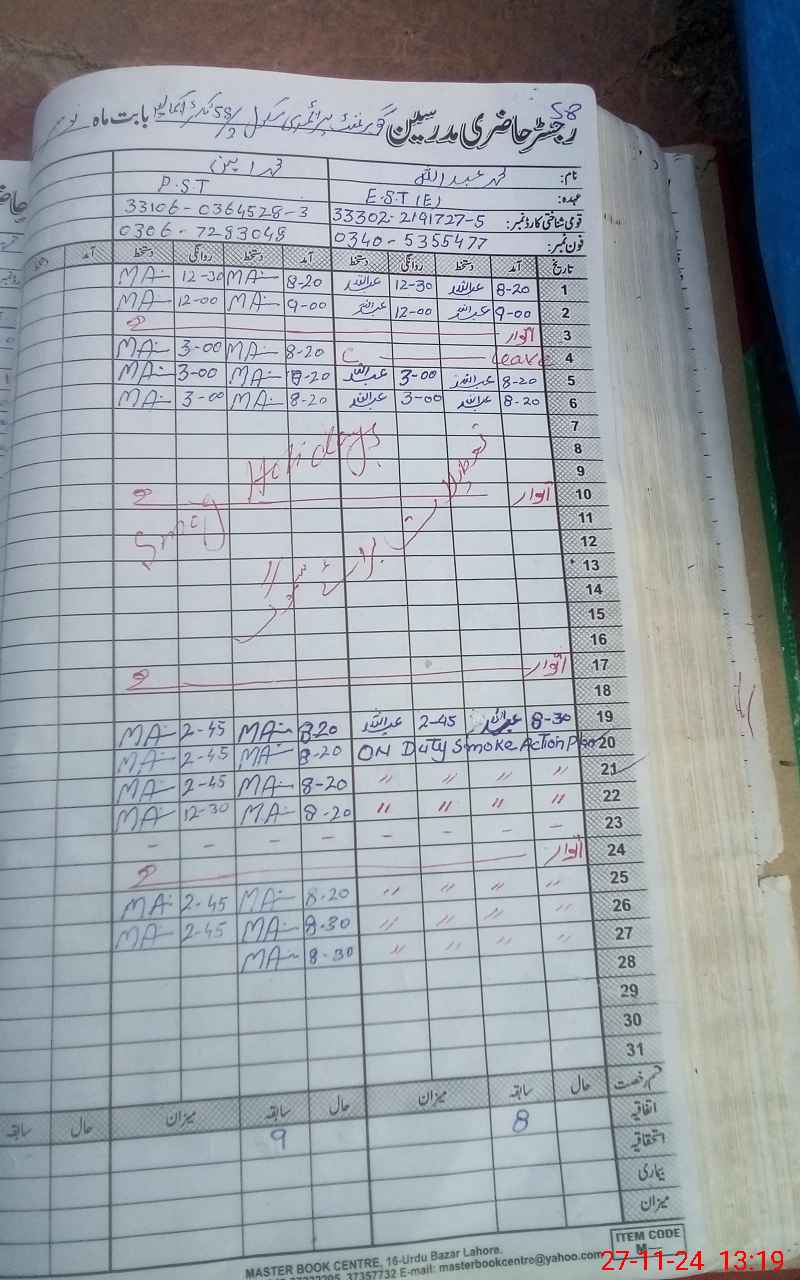 58
رجسٹر حاضری مدرسین گورنمنٹ پرائمری سکول 58/2 بابت ماہ نومبر
نام: محمد عبداللہ محمد امین
عہدہ: E.S.T (E) P.S.T
قومی شناختی کارڈ نمبر: 33302-2191727-5 33106-0364528-3
فون نمبر: 0340-5355477 0306-7283048
تاریخ آمد دستخط روانگی دستخط آمد دستخط روانگی دستخط آمد
1 8-20 عبداللہ 12-30 عبداللہ 8-20 MA 12-30 MA
2 9-00 عبداللہ 12-00 عبداللہ 9-00 MA 12-00 MA
3 اتوار
4 Leave 8-20 MA 3-00 MA
5 8-20 عبداللہ 3-00 عبداللہ 8-20 MA 3-00 MA
6 8-20 عبداللہ 3-00 عبداللہ 8-20 MA 3-00 MA
7
8
Smog Holidays
تعطیلات برائے سموگ
9
10 اتوار
11
12
13
14
15
16
17 اتوار
18
19 8-30 عبداللہ 2-45 عبداللہ 8-20 MA 2-45 MA
20 ON Duty Smoke Action Plan 8-20 MA 2-45 MA
21 " " " " 8-20 MA 2-45 MA
22 " " " " 8-20 MA 12-30 MA
23 - - - - - - - -
24 اتوار
25 " " " " 8-20 MA 2-45 MA
26 " " " " 8-30 MA 2-45 MA
27 " " " " 8-30 MA
28
29
30
31
قسم رخصت حال سابقہ میزان حال سابقہ میزان حال سابقہ
اتفاقیہ 8 9
استحقاقیہ
بیماری
میزان
ITEM CODE
M—
MASTER BOOK CENTRE, 16-Urdu Bazar Lahore.
37357732 E-mail: masterbookcentre@yahoo.com
27-11-24 13:19